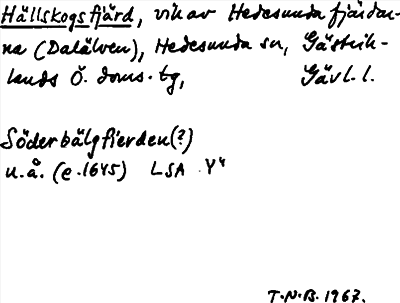 Hällskogsfjärd, vik av Hedesunda fjärdar-
na (Dalälven), Hedesunda sn, Gästrik-
lands Ö. doms. tg, Gävl. l.
Söderbälgfierden(?)
u.å. (e. 1645) LSA Y4
T.N.B. 1967.